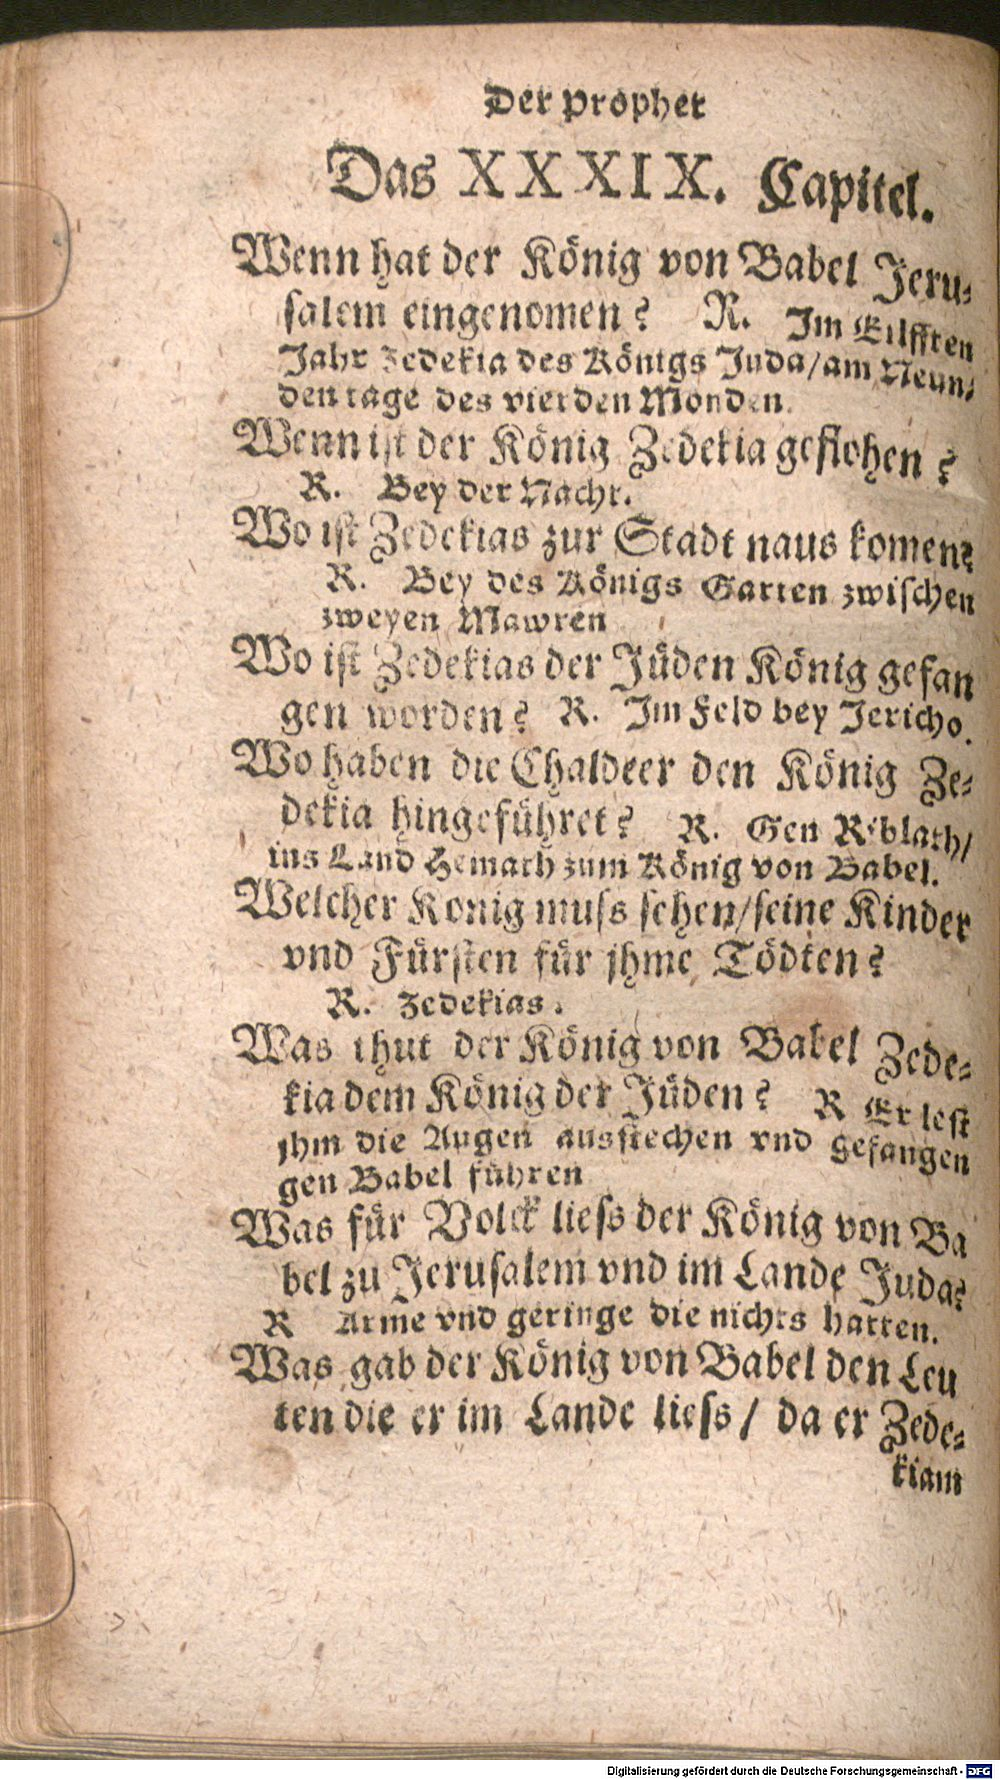 Der Prophet
Das XXXIX. Capitel.
Wenn hat der König von Babel Jeru-
salem eingenomen? R. Im Eilfften
Jahr Zedekia des Königs Juda/am Neun-
den tage des vierden Monden.
Wenn ist der König Zedekia geflohen?
R. Bey der Nacht.
Wo ist Zedekias zur Stadt naus komen?
R. Bey des Königs Garten zwischen
zweyen Mawren
Wo ist Zedekias der Jüden König gefan
gen worden? R. Im Feld bey Jericho.
Wo haben die Chaldeer den König Ze-
dekia hingeführet? R. Gen Riblath/
ins Land Hemath zum König von Babel.
Welcher König muss sehen/seine Kinder
vnd Fürsten für jhme Tödten?
R. Zedekias.
Was thut der König von Babel Zede-
kia dem König der Jüden? R Er lest
jhm die Augen ausstechen vnd gefangen
gen Babel führen
Was für Volck liess der König von Ba
bel zu Jerusalem vnd im Lande Juda?
R Arme vnd geringe die nichts hatten.
Was gab der König von Babel den Leu
ten die er im Lande liess / da er Zede-
kiam
Digitalisierung gefördert durch die Deutsche Forschungsgemeinschaft - DFG